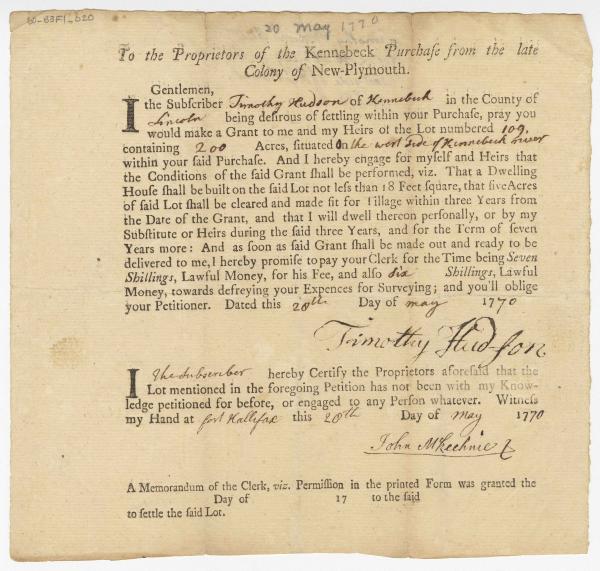 60-B3F1_b20
20 May 1770
To the Proprietors of the Kennebeck Purchaſe from the late
Colony of New-Plymouth.
Gentlemen,
I the Subſcriber Timothy Hudson of Kennebeck in the County of
Lincoln being deſirous of ſettling within your Purchaſe, pray you
would make a Grant to me and my Heirs of the Lot numbered 109,
containing 200 Acres, ſituated On the west side of Kennebeck river
within your ſaid Purchaſe. And I hereby engage for myſelf and Heirs that
the Conditions of the ſaid Grant ſhall be performed, viz. That a Dwelling
Houſe ſhall be built on the ſaid Lot not leſs than 18 Feet ſquare, that five Acres
of ſaid Lot ſhall be cleared and made fit for Tillage within three Years from
the Date of the Grant, and that I will dwell thereon perſonally, or by my
Subſtitute or Heirs during the ſaid three Years, and for the Term of ſeven
Years more: And as ſoon as ſaid Grant ſhall be made out and ready to be
delivered to me, I hereby promiſe to pay your Clerk for the Time being Seven
Shillings, Lawful Money, for his Fee, and alſo six Shillings, Lawful
Money, towards defreying your Expences for Surveying; and you'll oblige
your Petitioner. Dated this 20th Day of may 1770
Timothy Hudſon
I The Subscriber hereby Certify the Proprietors aforeſaid that the
Lot mentioned in the foregoing Petition has not been with my Know-
ledge petitioned for before, or engaged to any Perſon whatever. Witneſs
my Hand at fort Hallifax this 20th Day of may 1770
John McKechnie
A Memorandum of the Clerk, viz. Permiſſion in the printed Form was granted the
Day of 17 to the ſaid
to ſettle the ſaid Lot.